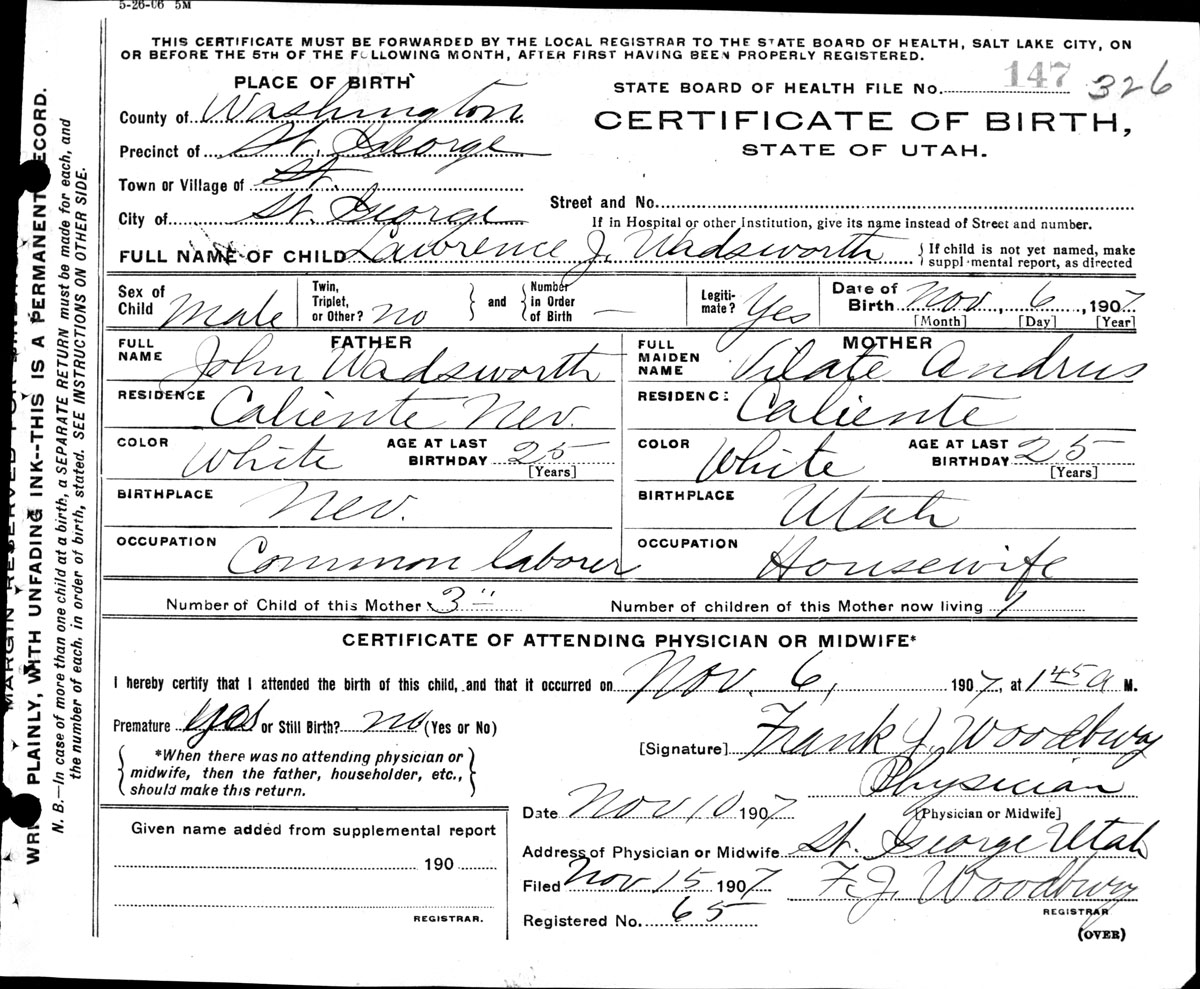 5-26-06 5M
THIS CERTIFICATE MUST BE FORWARDED BY THE LOCAL REGISTRAR TO THE STATE BOARD OF HEALTH, SALT LAKE CITY, ON
OR BEFORE THE 5TH OF THE FOLLOWING MONTH, AFTER FIRST HAVING BEEN PROPERLY REGISTERED.
PLACE OF BIRTH
STATE BOARD OF HEALTH FILE No. 147 326
County of Washington
CERTIFICATE OF BIRTH,
STATE OF UTAH.
Precinct of St. George
Town or Village of St.
City of St. George
Street and No.
If in Hospital or other Institution, give its name instead of Street and number.
FULL NAME OF CHILD Lawrence J. Wadsworth
{If child is not yet named, make
supplemental report, as directed
Sex of Child Male
Twin, Triplet, or Other? no
and
Number in Order of Birth —
Legiti-mate? Yes
Date of Birth Nov, 6, 1907
[Month] [Day] [Year]
FATHER
FULL NAME John Wadsworth
MOTHER
FULL MAIDEN NAME Vilate Andrus
RESIDENCE Caliente Nev.
RESIDENCE Caliente
COLOR White AGE AT LAST BIRTHDAY 25 [Years]
COLOR White AGE AT LAST BIRTHDAY 25 [Years]
BIRTHPLACE Nev.
BIRTHPLACE Utah
OCCUPATION Common laborer
OCCUPATION Housewife
Number of Child of this Mother 3"
Number of children of this Mother now living 1
CERTIFICATE OF ATTENDING PHYSICIAN OR MIDWIFE*
I hereby certify that I attended the birth of this child, and that it occurred on Nov. 6, 1907, at 1 45 a M.
Premature yes or Still Birth? no (Yes or No)
[Signature] Frank J. Woodbury
*When there was no attending physician or
midwife, then the father, householder, etc.,
should make this return.
Physician
[Physician or Midwife]
Date Nov 10 1907
Address of Physician or Midwife St. George Utah
Filed Nov 15 1907 F. J. Woodbury
REGISTRAR
Registered No. 65
(OVER)
Given name added from supplemental report
190
REGISTRAR.
MARGIN RESERVED FOR
PLAINLY, WITH UNFADING INK--THIS IS A PERMANENT RECORD.
N. B.—In case of more than one child at a birth, a SEPARATE RETURN must be made for each, and
the number of each, in order of birth, stated. SEE INSTRUCTIONS ON OTHER SIDE.